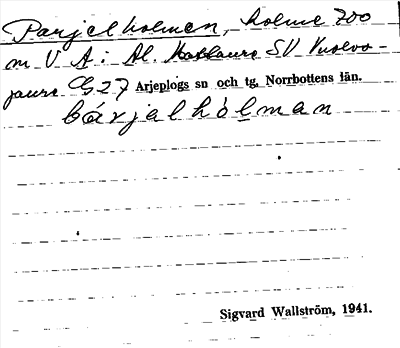 Parjelholmen, holme 700
m V A i Al. SV Vuolvo-
jaure G27 Arjeplogs sn och tg, Norrbottens län.
bárjalhòlman
Sigvard Wallström, 1941.